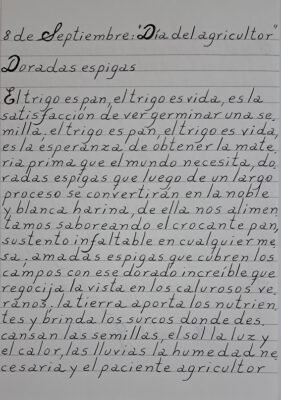 8 de Septiembre: "Día del agricultor"
Doradas espigas
El trigo es pan, el trigo es vida, es la
satisfacción de ver germinar una se
milla. el trigo es pan, el trigo es vida,
es la esperanza de obtener la mate
ria prima que el mundo necesita, do
radas espigas que luego de un largo
proceso se convertirán en la noble
y blanca harina, de ella nos alimen
tamos saboreando el crocante pan,
sustento infaltable en cualquier me
sa, amadas espigas que cubren los
campos con ese dorado increíble que
regocija la vista en los calurosos ve
ranos, la tierra aporta los nutrien
tes y brinda los surcos donde des
cansan las semillas, el sol la luz y
el calor, las lluvias la humedad ne
cesaria y el paciente agricultor